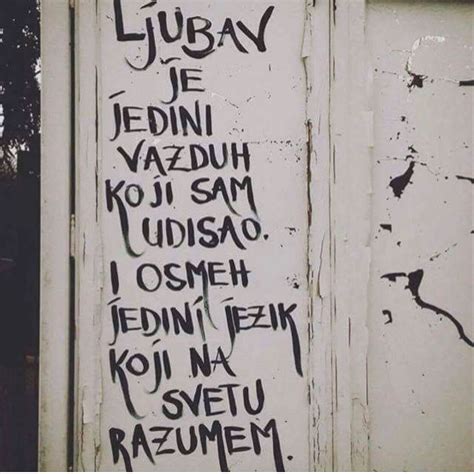 LJUBAV
JE
JEDINI
VAZDUH
KOJI SAM
UDISAO.
I OSMEH
JEDINI JEZIK
KOJI NA
SVETU
RAZUMEM.